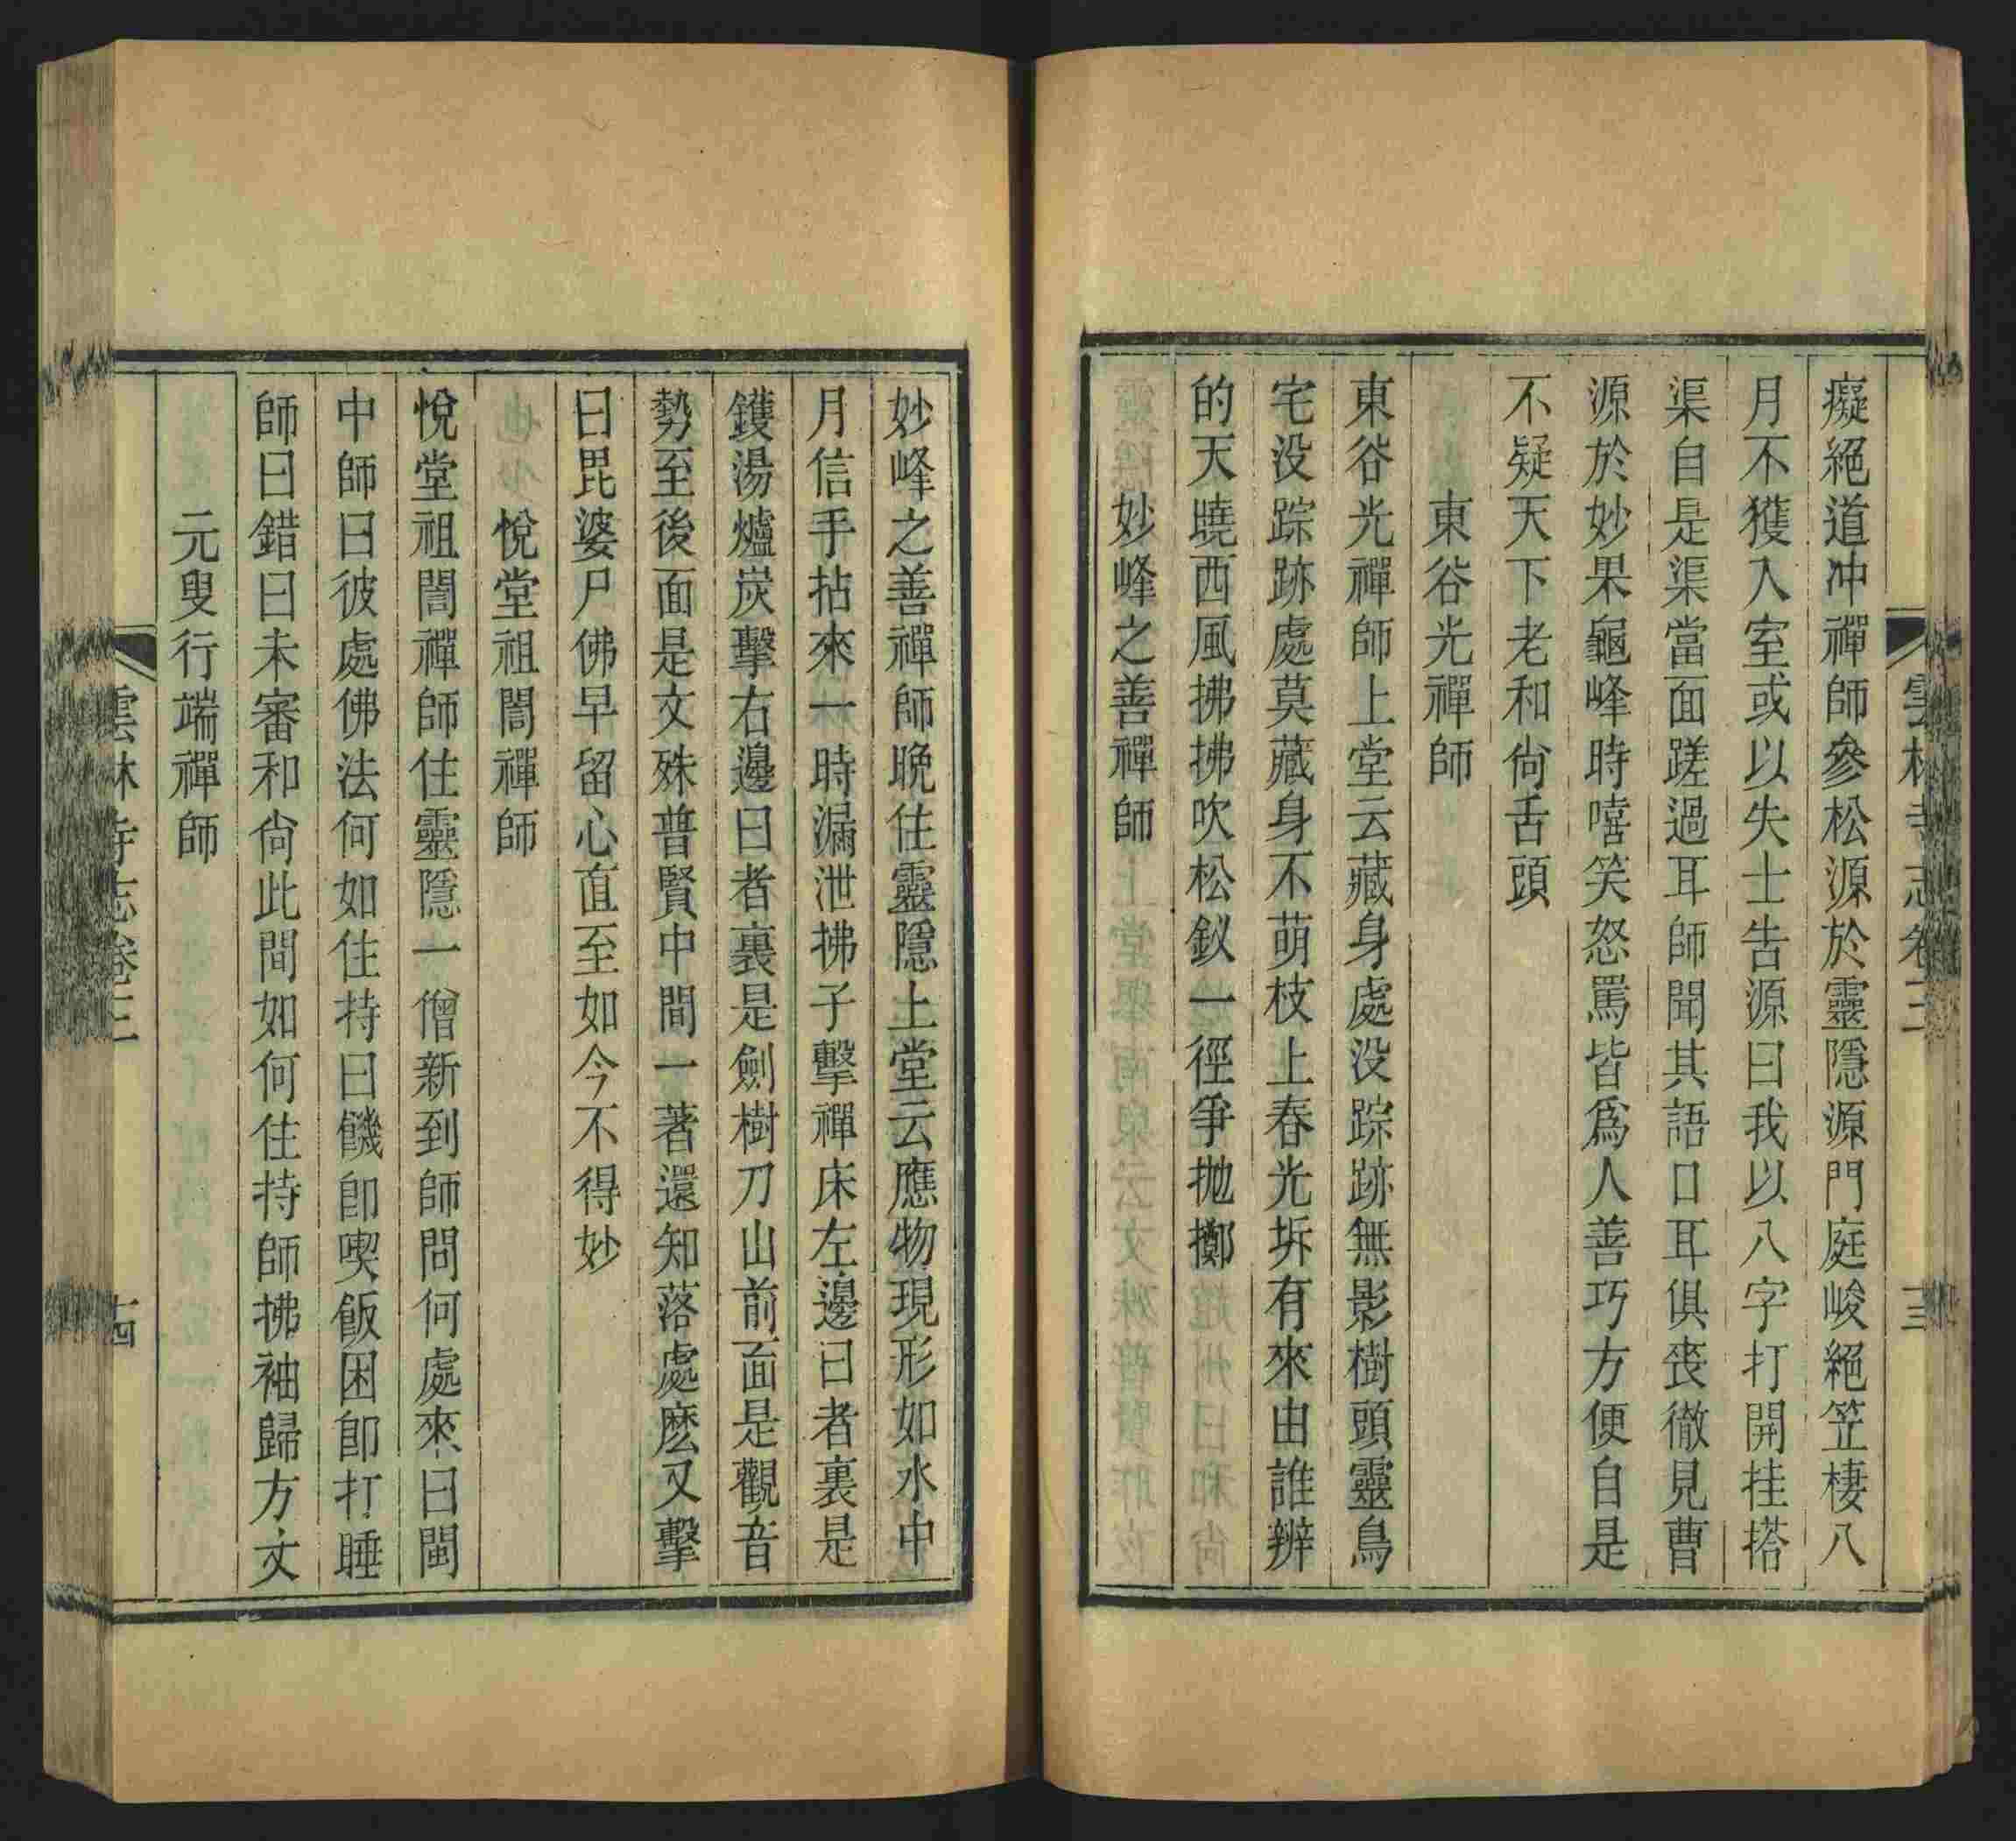 雲林寺志卷三
十三
癡絕道冲禪師參松源於靈隱源門庭峻絕笠棲八
月不獲入室或以失士告源曰我以八字打開挂搭
渠自是渠當面蹉過耳師聞其語口耳俱喪徹見曹
源於妙果龜峰時嘻笑怒罵皆爲人善巧方便自是
不疑天下老和尙舌頭
東谷光禪師
東谷光禪師上堂云藏身處没踪跡無影樹頭靈鳥
宅没踪跡處莫藏身不萌枝上春光拆有來由誰辨
的天曉西風拂拂吹松釵一徑爭抛擲
妙峰之善禪師
妙峰之善禪師晚住靈隱上堂云應物現形如水中
月信手拈來一時漏泄拂子擊禪床左邊曰者裏是
鑊湯爐炭擊右邊曰者裏是劍樹刀山前面是觀音
勢至後面是文殊普賢中間一著還知落處麽又擊
曰毘婆尸佛早留心直至如今不得妙
悅堂祖誾禪師
悅堂祖誾禪師住靈隱一僧新到師問何處來曰閩
中師曰彼處佛法何如住持曰饑卽喫飯困卽打睡
師曰錯曰未審和尙此間如何住持師拂袖歸方丈
元叟行端禪師
雲林寺志卷三
十四